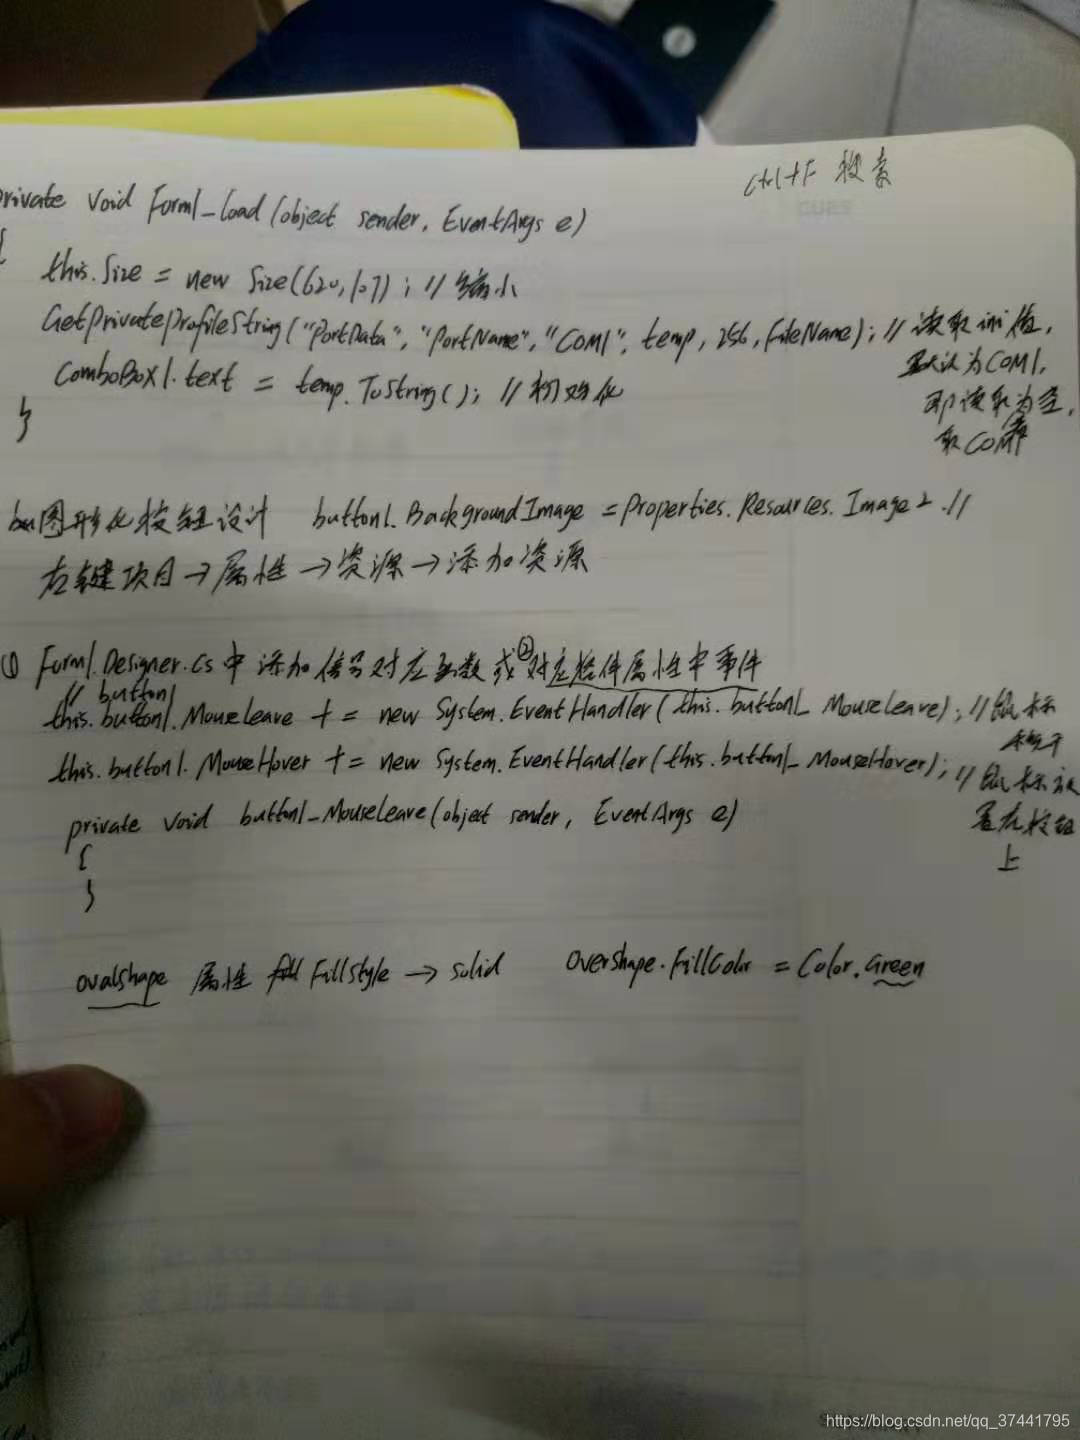 Ctrl+F 搜索
CUES
private void Form1_load(object sender, EventArgs e)
{
this.Size = new Size(620,107); // 缩小
GetPrivateProfileString("PortData", "PortName", "COM1", temp, 256, FileName); // 读取ini值,
默认为COM1,
即读取为空,
取COM
ComboBox1.text = temp.ToString(); // 初始化
}
图形化按钮设计 button1.BackgroundImage = Properties.Resources.Image2 //
右键项目→属性→资源→添加资源
① Form1.Designer.cs中添加信号对应函数或②对应控件属性中事件
// button1
this.button1.MouseLeave += new System.EventHandler(this.button1_MouseLeave); // 鼠标
离开
this.button1.MouseHover += new System.EventHandler(this.button1_MouseHover); // 鼠标放
置在按钮
上
private void button1_MouseLeave(object sender, EventArgs e)
{
}
ovalshape 属性 FillStyle → solid overshape.FillColor = Color.Green
https://blog.csdn.net/qq_37441795